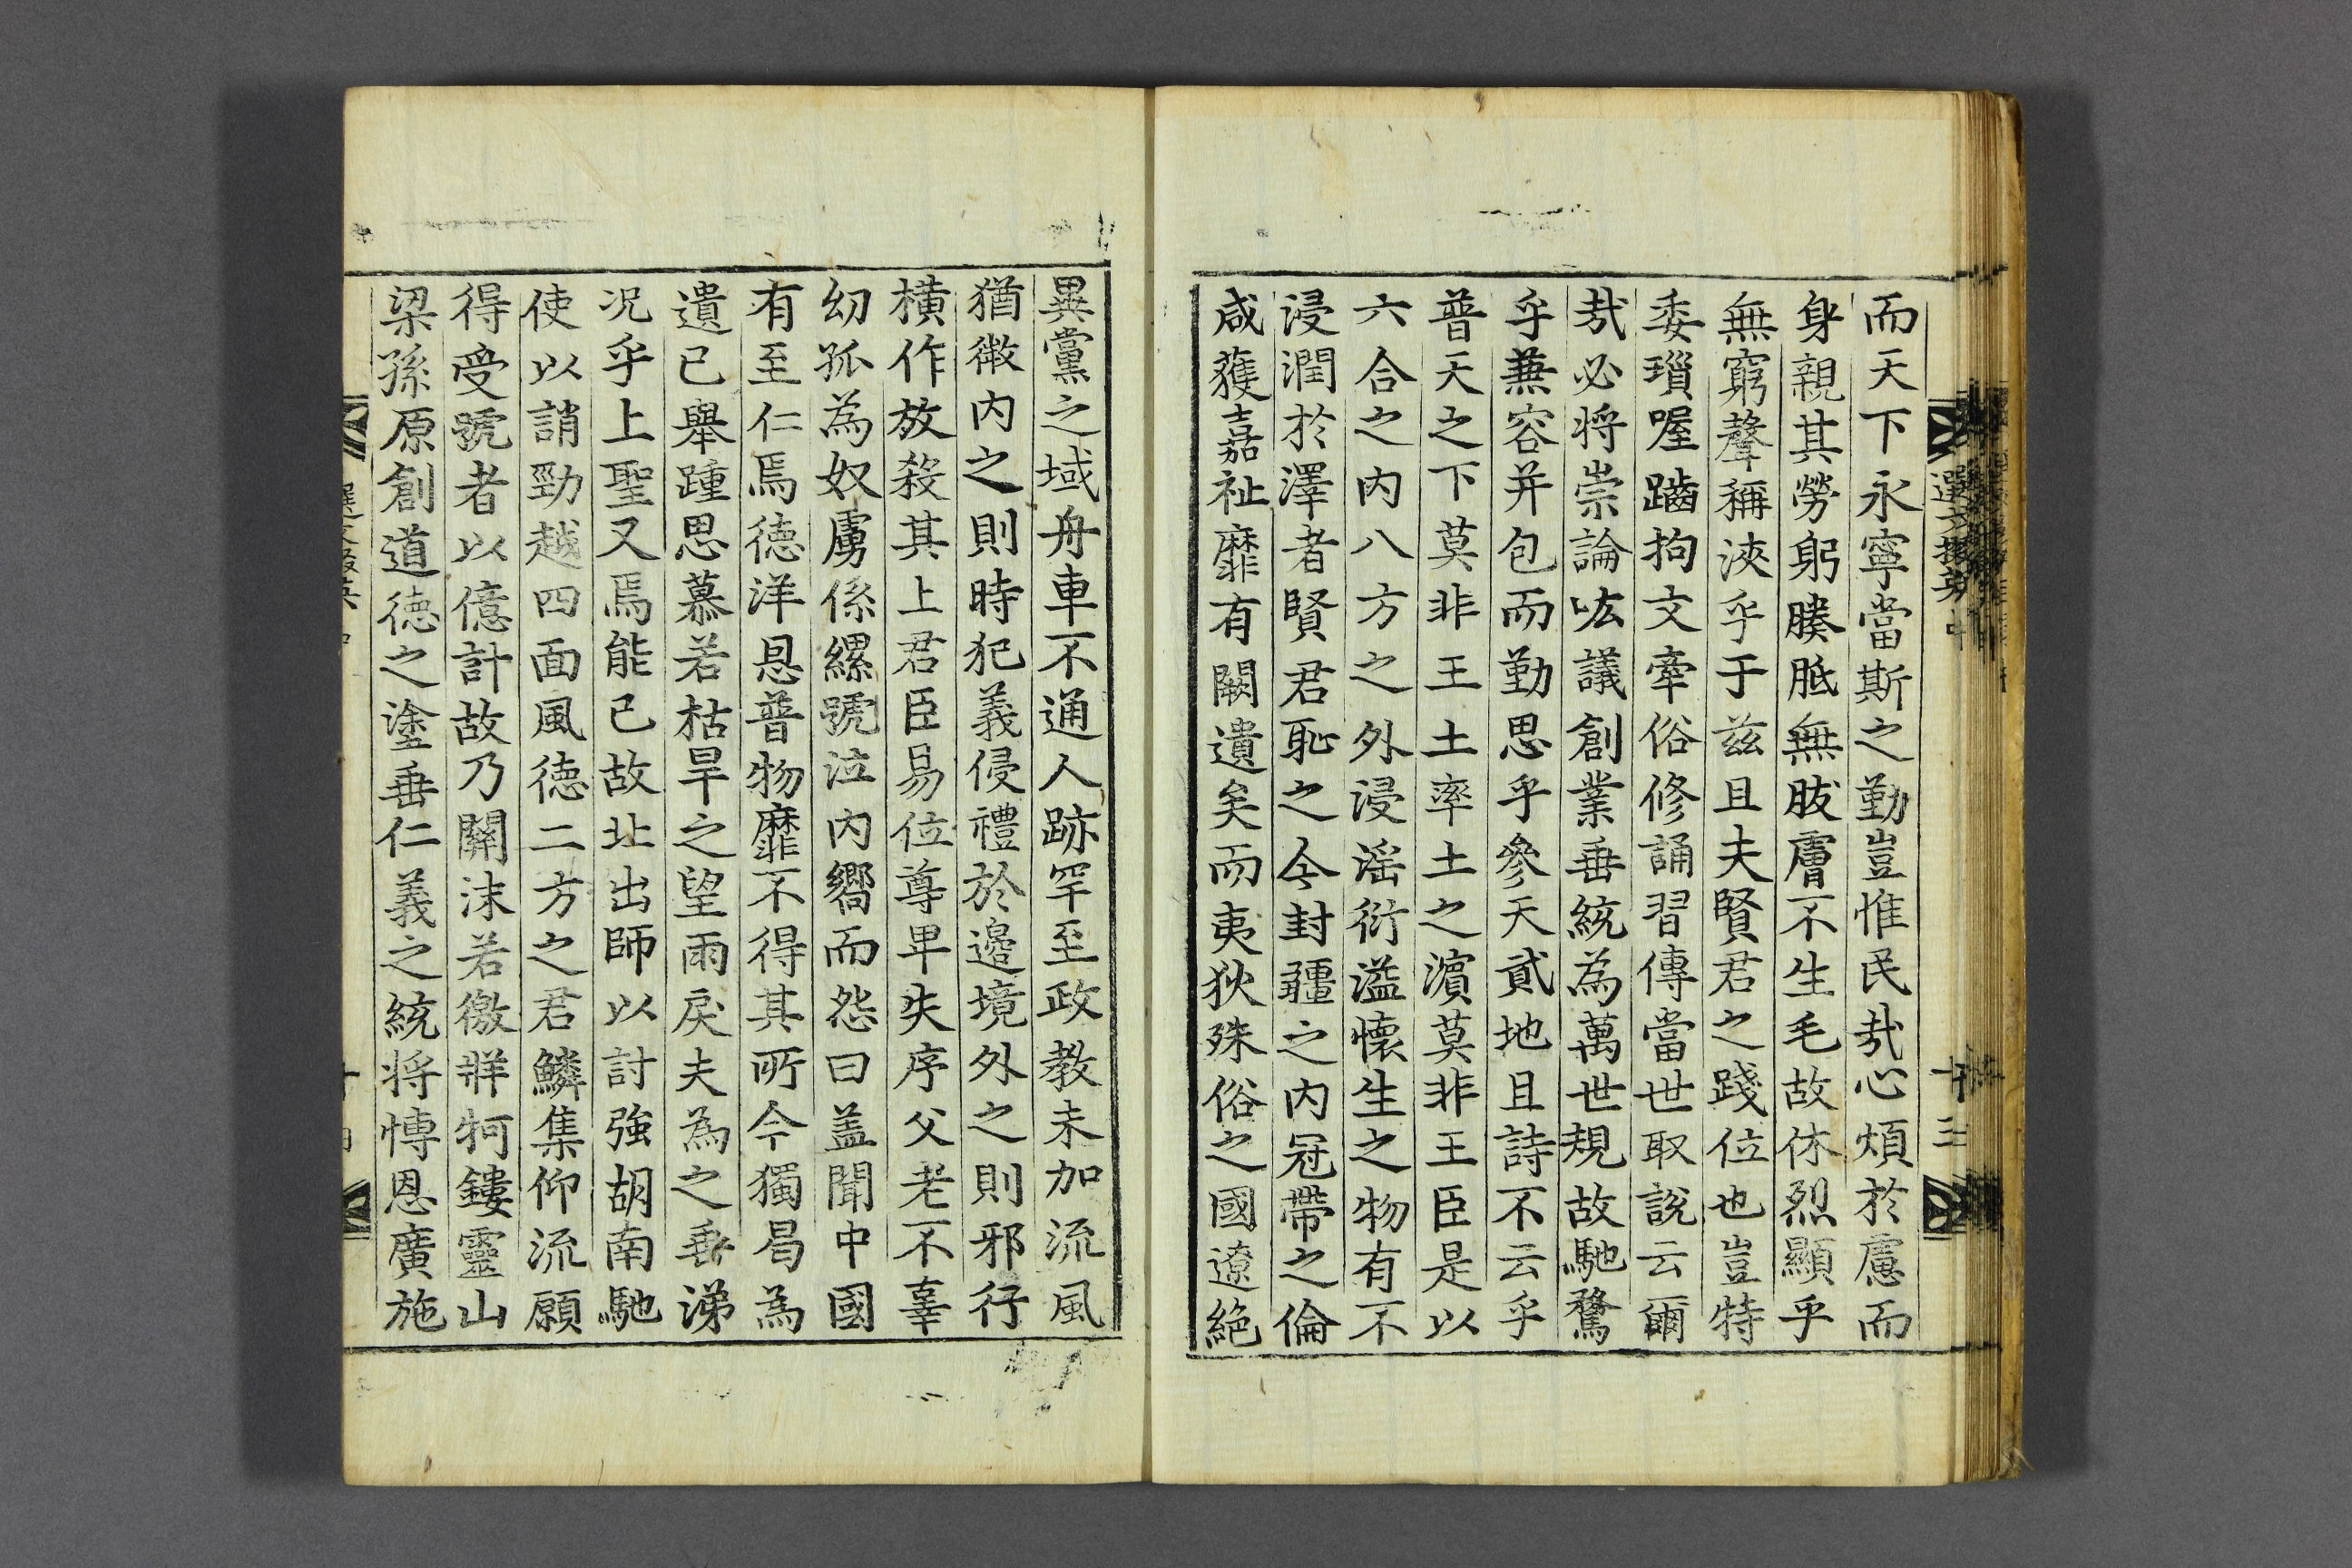 而天下永寧當斯之勤豈惟民㢤心煩於慮而
身親其勞躬腠胝無胈膚不生毛故休烈顯乎
無窮聲稱浹乎于兹且夫賢君之踐位也豈特
委瑣喔䠡拘文牽俗修誦習傳當世取說云爾
㢤必將崇論吰議創業垂統為萬世規故馳騖
乎兼容并包而勤思乎參天貳地且詩不云乎
普天之下莫非王土率土之濵莫非王臣是以
六合之内八方之外浸滛衍溢懐生之物有不
浸潤於澤者賢君恥之今封疆之内冠帶之倫
咸獲嘉祉靡有闕遺矣而夷狄殊俗之國遼絶
異黨之域舟車不通人跡罕至政教未加流風
猶微内之則時犯義侵禮於邉境外之則邪行
橫作放殺其上君臣易位尊卑失序父老不辜
幼孤為奴虜係縲號泣内嚮而怨曰盖聞中國
有至仁焉徳洋恩普物靡不得其所今獨曷為
遺已舉踵思慕若枯旱之望雨戾夫為之垂涕
况乎上聖又焉能已故北出師以討強胡南馳
使以誚勁越四面風徳二方之君鱗集仰流願
得受號者以億計故乃關沬若徼牂牁鏤靈山
梁孫原創道徳之塗垂仁義之統将愽恩廣施
選文掇英
十三